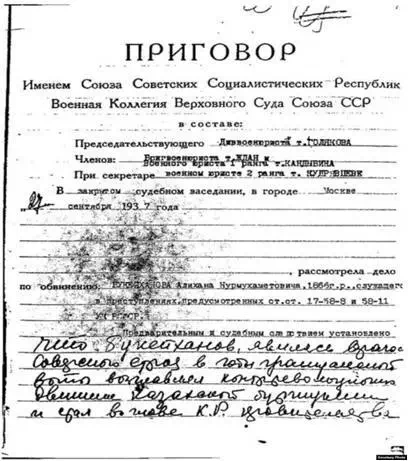 ПРИГОВОР
Именем Союза Советских Социалистических Республик
Военная Коллегия Верховного Суда Союза ССР
в составе:
Председательствующего Диввоенюриста т.ГОЛЯКОВА
Членов: Бригвоенюриста т.КЛАН и
Военного юриста 1 ранга т.КАНДЫБИНА
При секретаре военном юристе 2 ранга т. КУДРЯВЦЕВЕ
В закрытом судебном заседании, в городе Москве
"27" сентября 1937 года
, рассмотрела дело
по обвинению: БУКЕЙХАНОВА Алихана Нурмухаметовича, 1866г.р., служащего
в преступлениях, предусмотренных ст.ст. 17-58-8 и 58-11
УК РСФСР.
Предварительным и судебным следствием установлено
что Букейханов, являясь врагом
Советской в годы гражданской
войны возглавлял контрреволюционное
движение казахской буржуазии
и стал во главе К.Р. правительства
Courtesy Photo